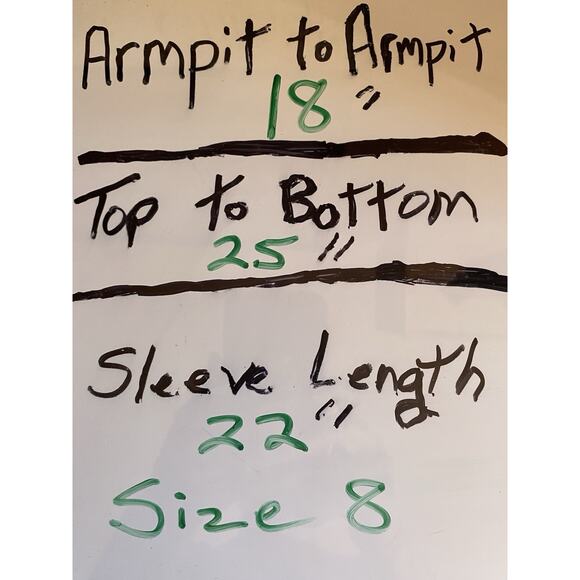 Armpit to Armpit
18"
Top to Bottom
25"
Sleeve Length
22"
Size 8